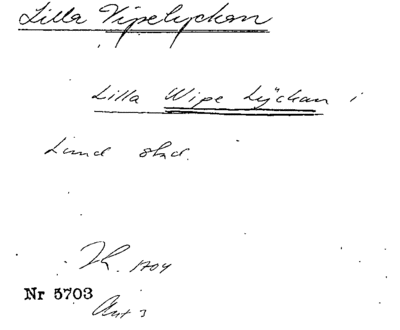 Lilla Vipelyckan
Lilla Wipe Lÿckan i
Lund stad.
1704
Nr 5703